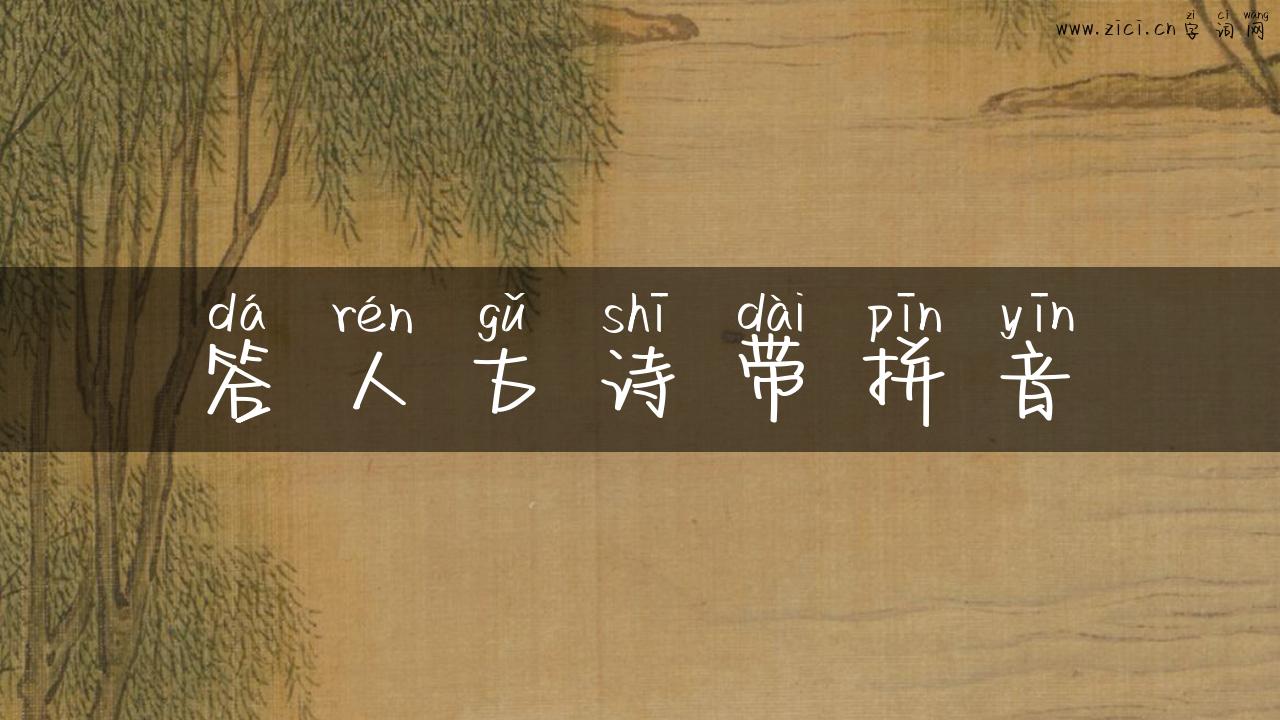 zì cí wǎng
www.zici.cn 字 词 网
dá rén gǔ shī dài pīn yīn
答 人 古 诗 带 拼 音